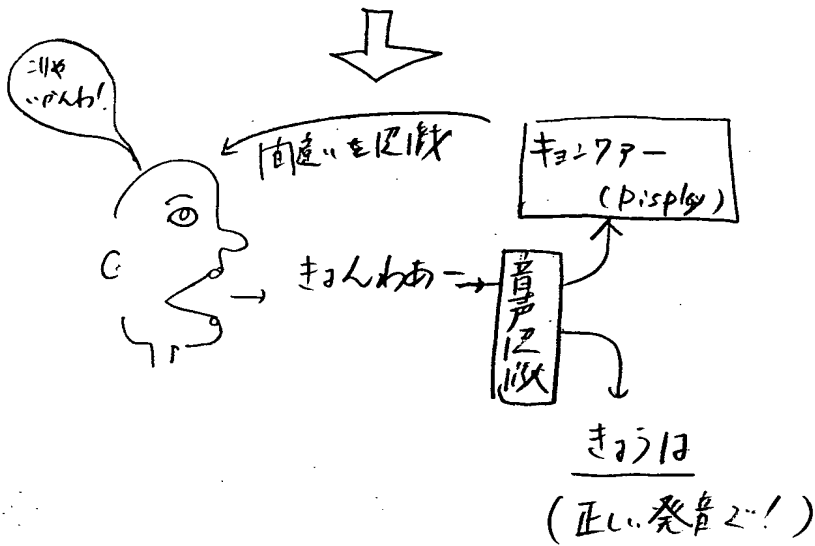 こりゃ
いかんわ!
間違いを認識
キョンワァー
(Display)
きょんわあー
音声認識
きょうは
(正しい発音で!)